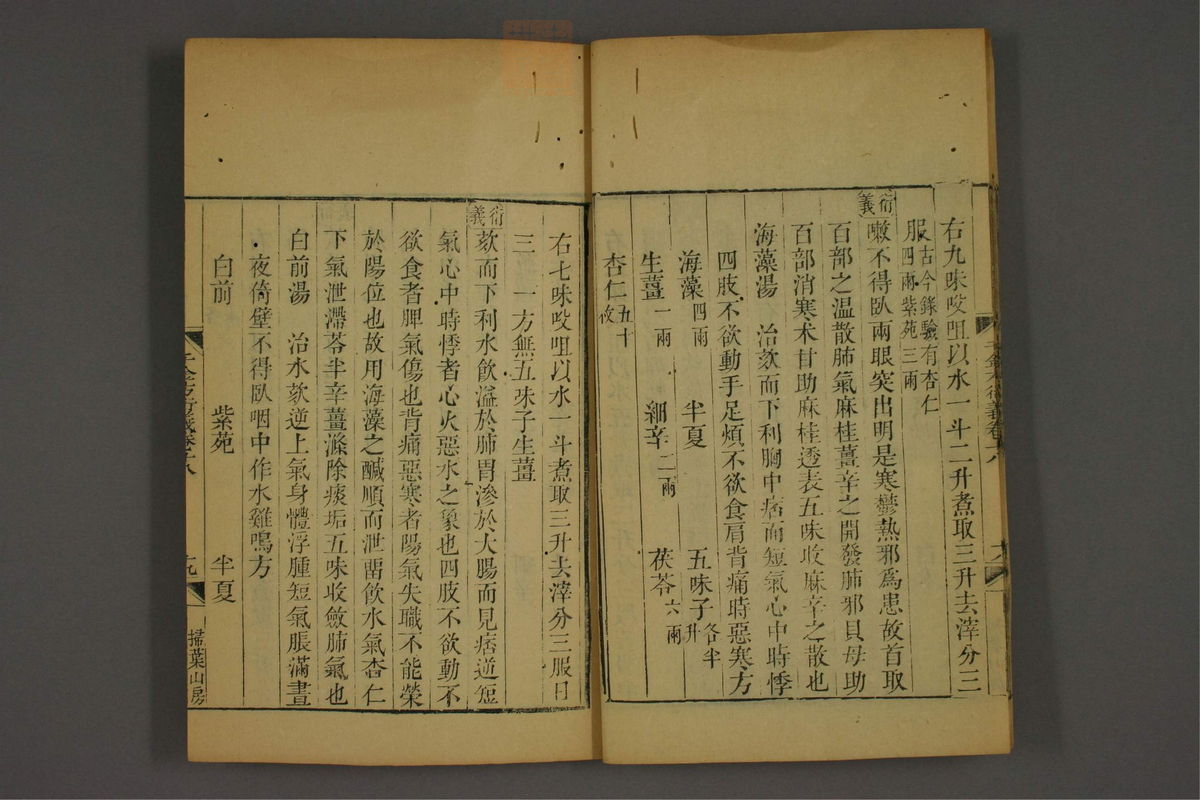 右九味㕮咀以水一斗二升煮取三升去滓分三
服古今錄驗有杏仁四兩紫苑三兩
衍義
嗽不得臥兩眼突出明是寒鬱熱邪爲患故首取
百部之温散肺氣麻桂薑辛之開發肺邪貝母助
百部消寒朮甘助麻桂透表五味收麻辛之散也
海藻湯 治欬而下利胸中痞而短氣心中時悸
四肢不欲動手足煩不欲食肩背痛時惡寒方
海藻四兩 半夏 五味子各半升
生薑一兩 細辛二兩 茯苓六兩
杏仁五十枚
右七味㕮咀以水一斗煮取三升去滓分三服日
三 一方無五味子生薑
衍義
欬而下利水飲溢於肺胃滲於大腸而見痞逆短
氣心中時悸者心火惡水之象也四肢不欲動不
欲食者脾氣傷也背痛惡寒者陽氣失職不能榮
於陽位也故用海藻之鹹順而泄畱飲水氣杏仁
下氣泄滯苓半辛薑滌除痰垢五味收斂肺氣也
白前湯 治水欬逆上氣身體浮腫短氣脹滿晝
夜倚壁不得臥咽中作水雞鳴方
白前 紫苑 半夏
掃葉山房